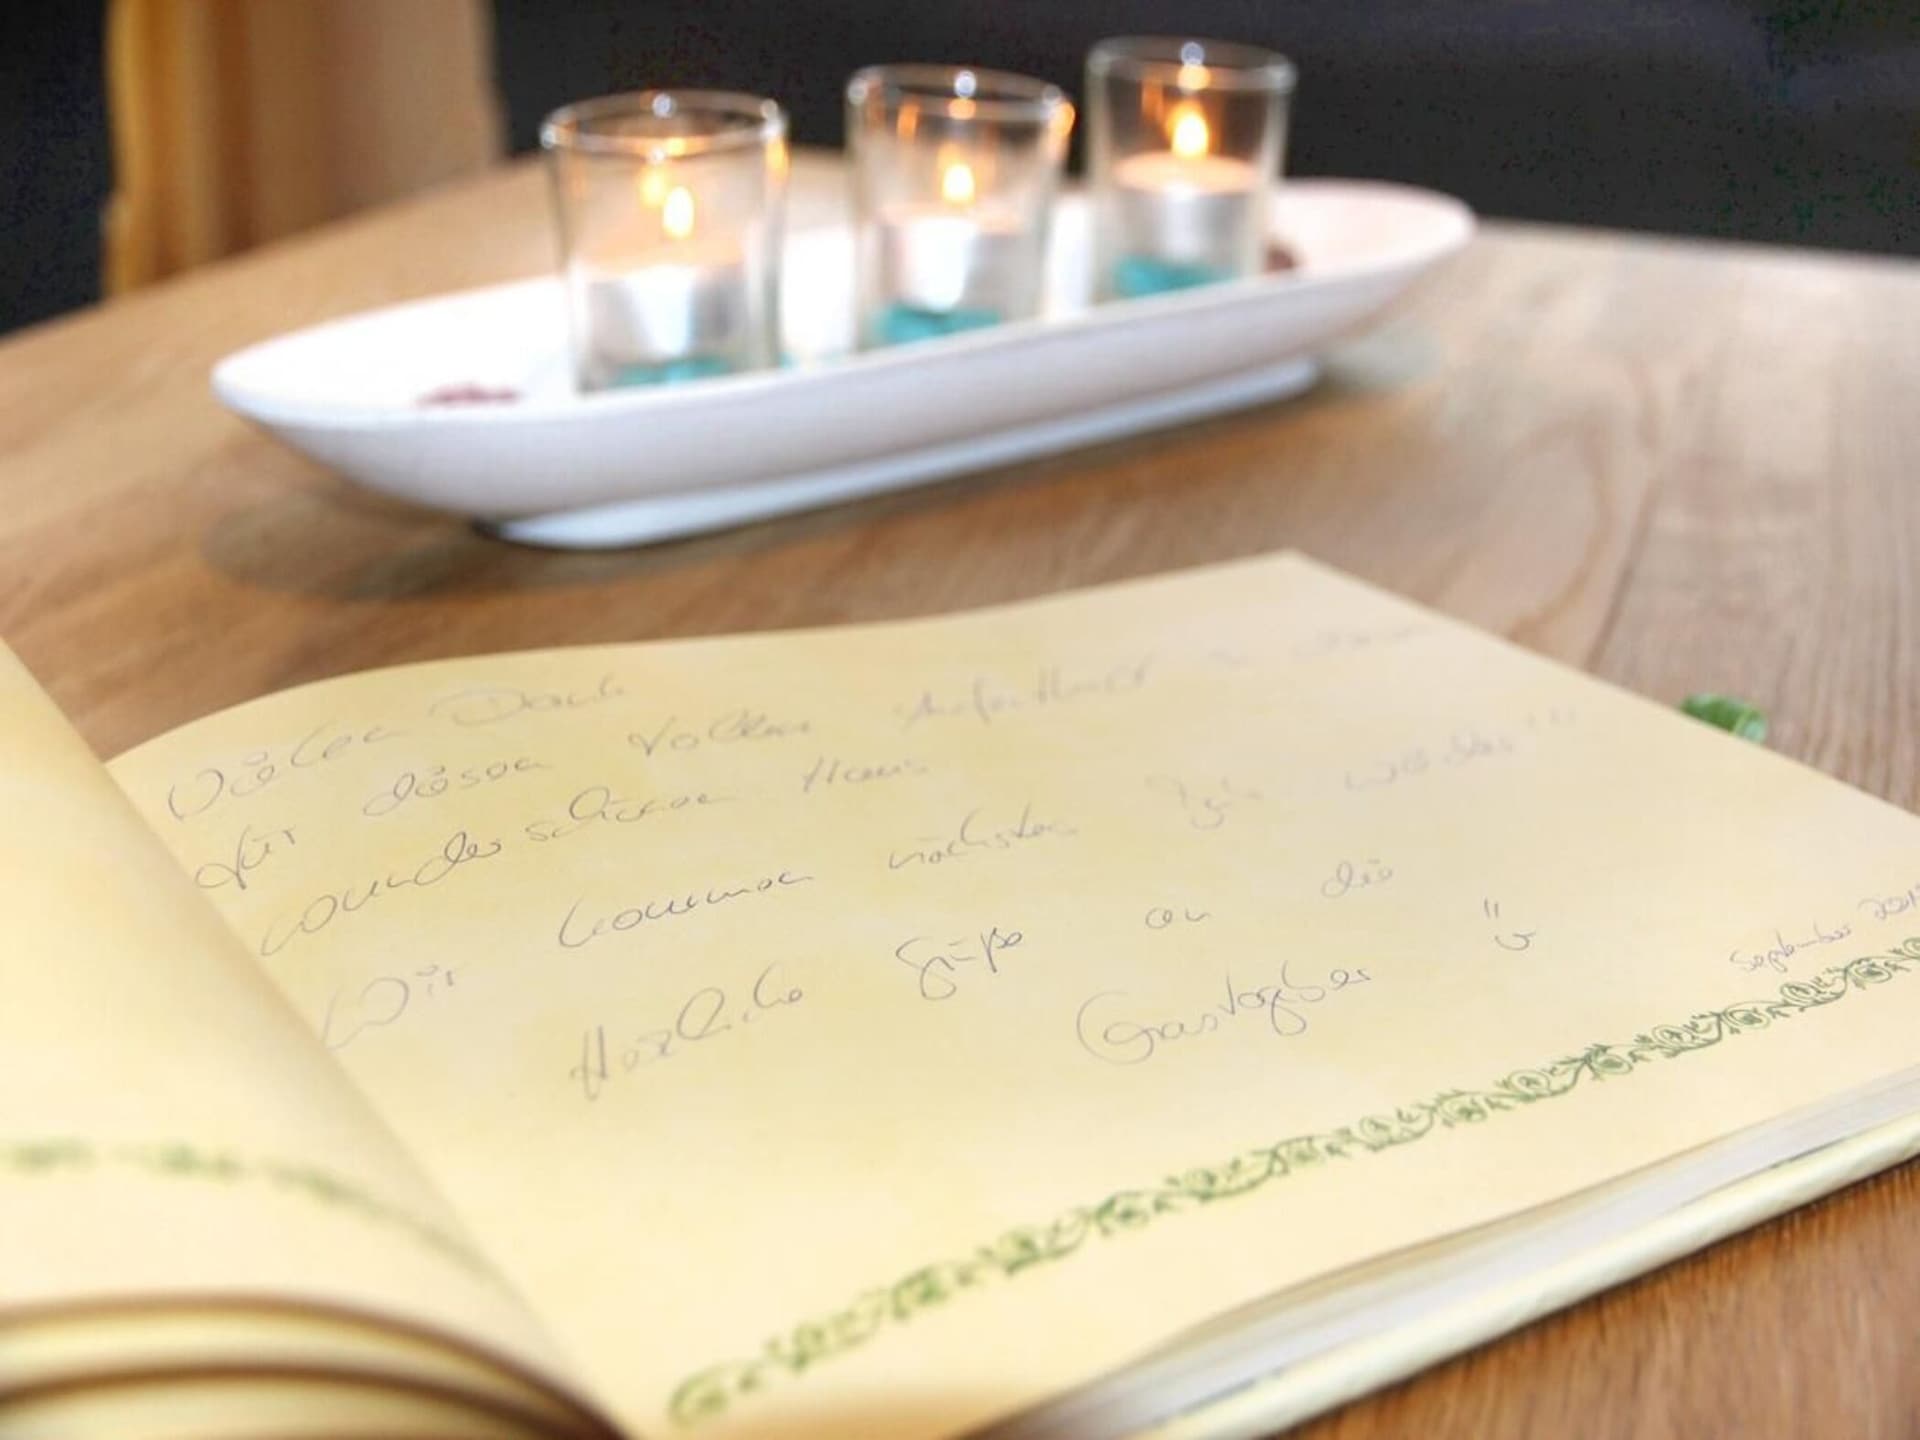 Vielen Dank
für diesen tollen Aufenthalt in diesem
wunderschönen Haus
Wir kommen nächstes Jahr wieder!!!
Herzliche Grüße an die
Gastgeber
September